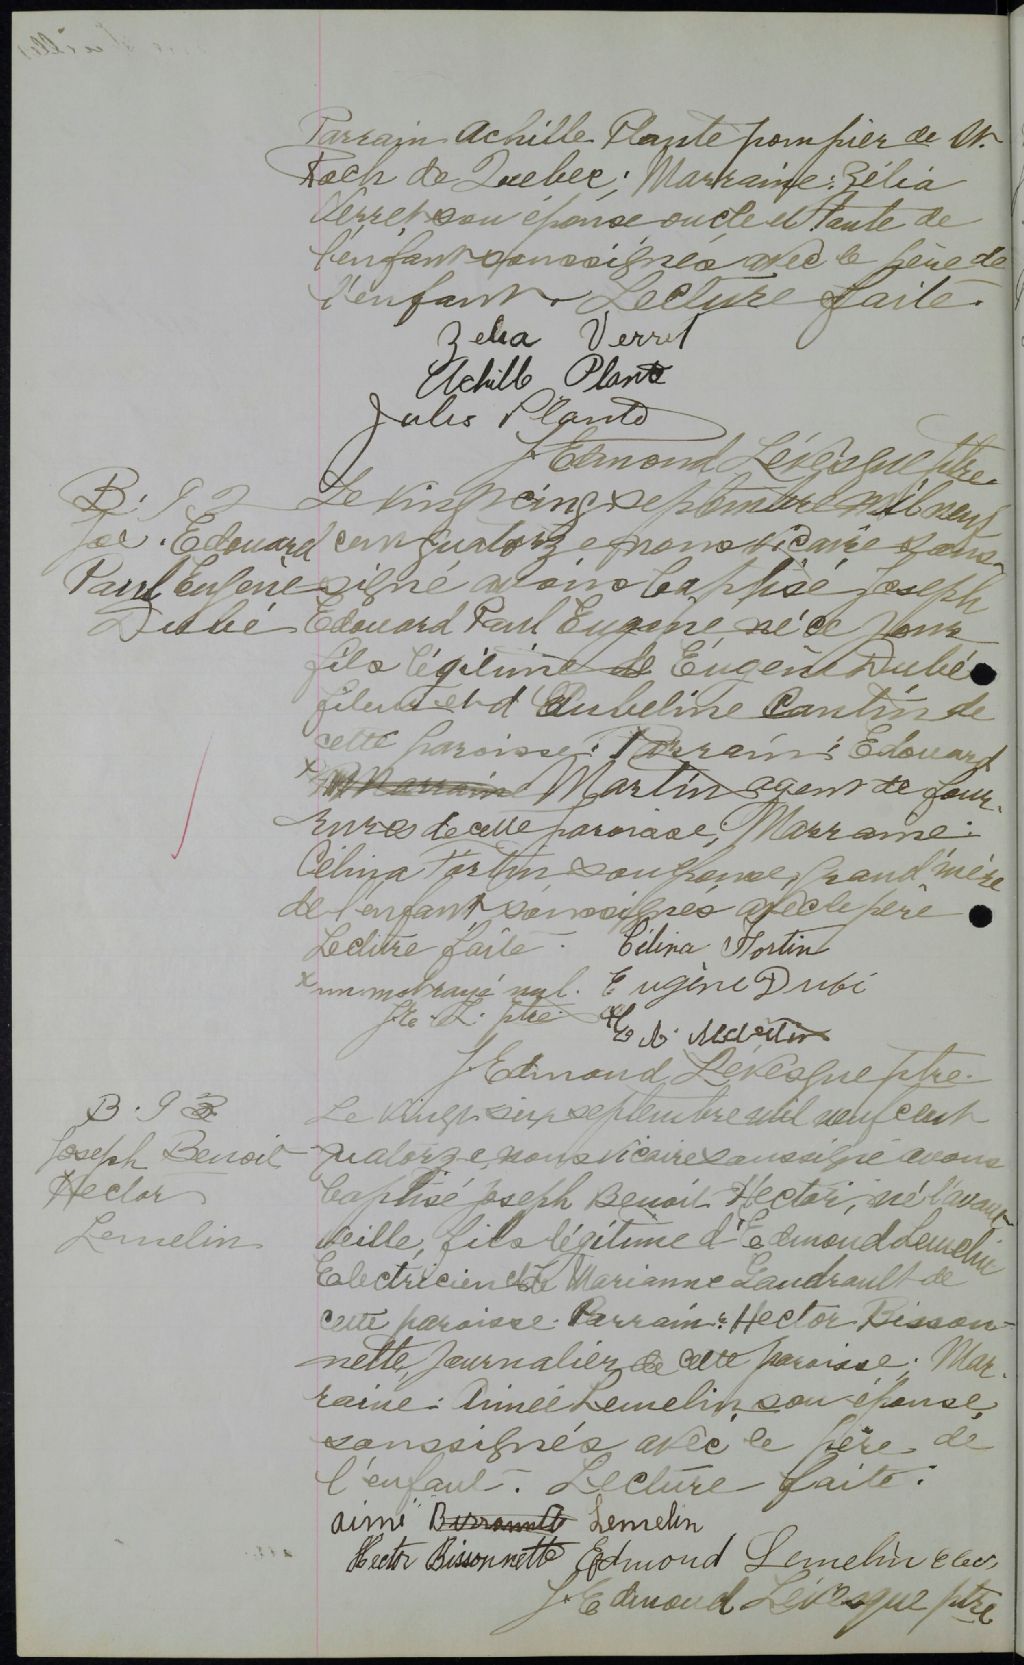 Parrain Achille Plante pompier de St.
Roch de Quebec; Marraine: Zélia
Verret son épouse oncle et tante de
l'enfant soussignés avec le père de
l'enfant. Lecture faite.
Zelia Verret
Achille Plante
Jules Plante
J. Edmond Lévesque ptre.
B. 92
Jos. Edouard
Paul Eugène
Dubé
Le vingt cinq septembre mil neuf
cent quatorze nous vicaire sous-
signé avons baptisé Joseph
Edouard Paul Eugène, né ce jour
fils légitime de Eugène Dubé
fileur et d'Aubeline Cantin de
cette paroisse: Parrain: Edouard
x Marraine Martin agent de four-
rures de cette paroisse; Marraine:
Célina Fortin son épouse, grand'mère
de l'enfant soussignés avec le père
Lecture faite. Célina Fortin
x un mot rayé nul. Eugène Dubé
J. E. L. ptre
E. N. Martin
J. Edmond Lévesque ptre.
B. 93
Joseph Benoit
Hector
Lemelin
Le vingt six septembre mil neuf cent
quatorze, nous vicaire soussigné avons
baptisé Joseph Benoit Hector, né l'avant
veille, fils légitime d'Edmond Lemelin
Electricien et de Marianne Gaudrault de
cette paroisse. Parrain: Hector Bisson-
nette, journalier de cette paroisse; Mar-
raine: Aimée Lemelin, son épouse,
soussignés avec le père de
l'enfant. Lecture faite.
aimé Bissonnette Lemelin
Hector Bissonnette Edmond Lemelin elec.
J. Edmond Lévesque ptre